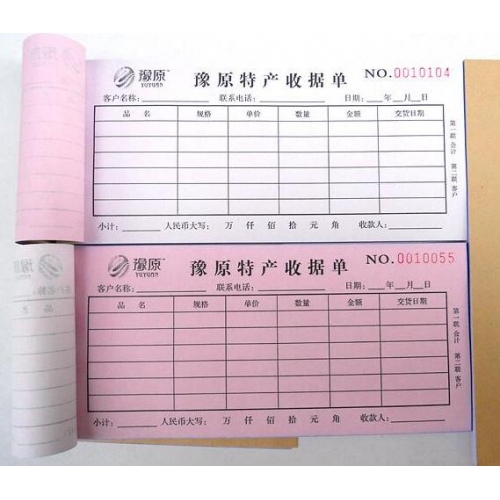 豫原
YUYUAN
豫原特产收据单
NO.0010104
客户名称：
联系电话：
日期： 年 月 日
品 名 规格 单价 数量 金额 交货日期
小计： 人民币大写： 万 仟 佰 拾 元 角 收款人：
第一联会计 第二联客户
豫原
YUYUAN
豫原特产收据单
NO.0010055
客户名称：
联系电话：
日期： 年 月 日
品 名 规格 单价 数量 金额 交货日期
小计： 人民币大写： 万 仟 佰 拾 元 角 收款人：
第一联会计 第二联客户